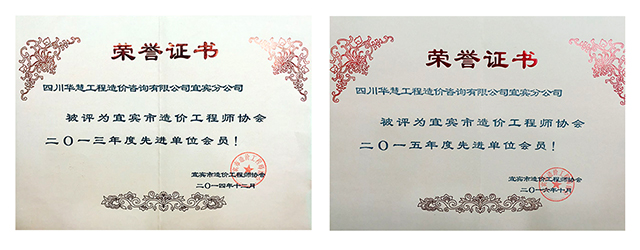 荣誉证书
四川华慧工程造价咨询有限公司宜宾分公司
被评为宜宾市造价工程师协会
二〇一三年度先进单位会员！
宜宾市造价工程师协会
二〇一四年十二月
荣誉证书
四川华慧工程造价咨询有限公司宜宾分公司
被评为宜宾市造价工程师协会
二〇一五年度先进单位会员！
宜宾市造价工程师协会
二〇一六年十月